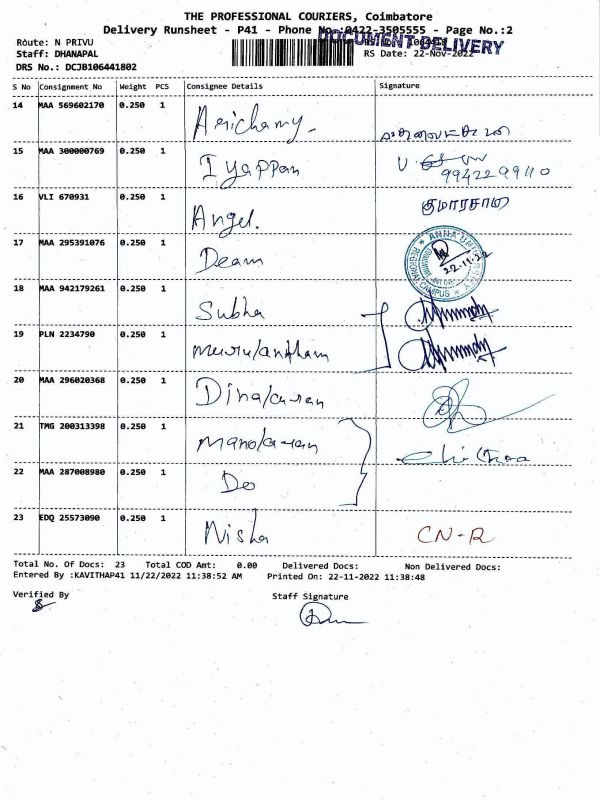 THE PROFESSIONAL COURIERS, Coimbatore
Delivery Runsheet - P41 - Phone No.:0422-3505555 - Page No.:2
DOCUMENT DELIVERY
Route: N PRIVU
Staff: DHANAPAL RS Date: 22-Nov-2022
DRS No.: DCJB106441802
S No Consignment No Weight PCS Consignee Details Signature
14 MAA 569602170 0.250 1 Arichamy
15 MAA 300000769 0.250 1 Iyappan
9942299410
16 VLI 670931 0.250 1 Angel. குமாரசாமி
17 MAA 295391076 0.250 1 Deam
ANNA UNIVERSITY
REGIONAL CAMPUS
22.11.22
18 MAA 942179261 0.250 1 Subha
19 PLN 2234790 0.250 1
20 MAA 296020368 0.250 1 Dinakaran
21 TMG 200313398 0.250 1 Manokaran
22 MAA 287008980 0.250 1 Do
23 EDQ 25573090 0.250 1 Nisha CN-R
Total No. Of Docs: 23 Total COD Amt: 0.00 Delivered Docs: Non Delivered Docs:
Entered By :KAVITHAP41 11/22/2022 11:38:52 AM Printed On: 22-11-2022 11:38:48
Verified By Staff Signature